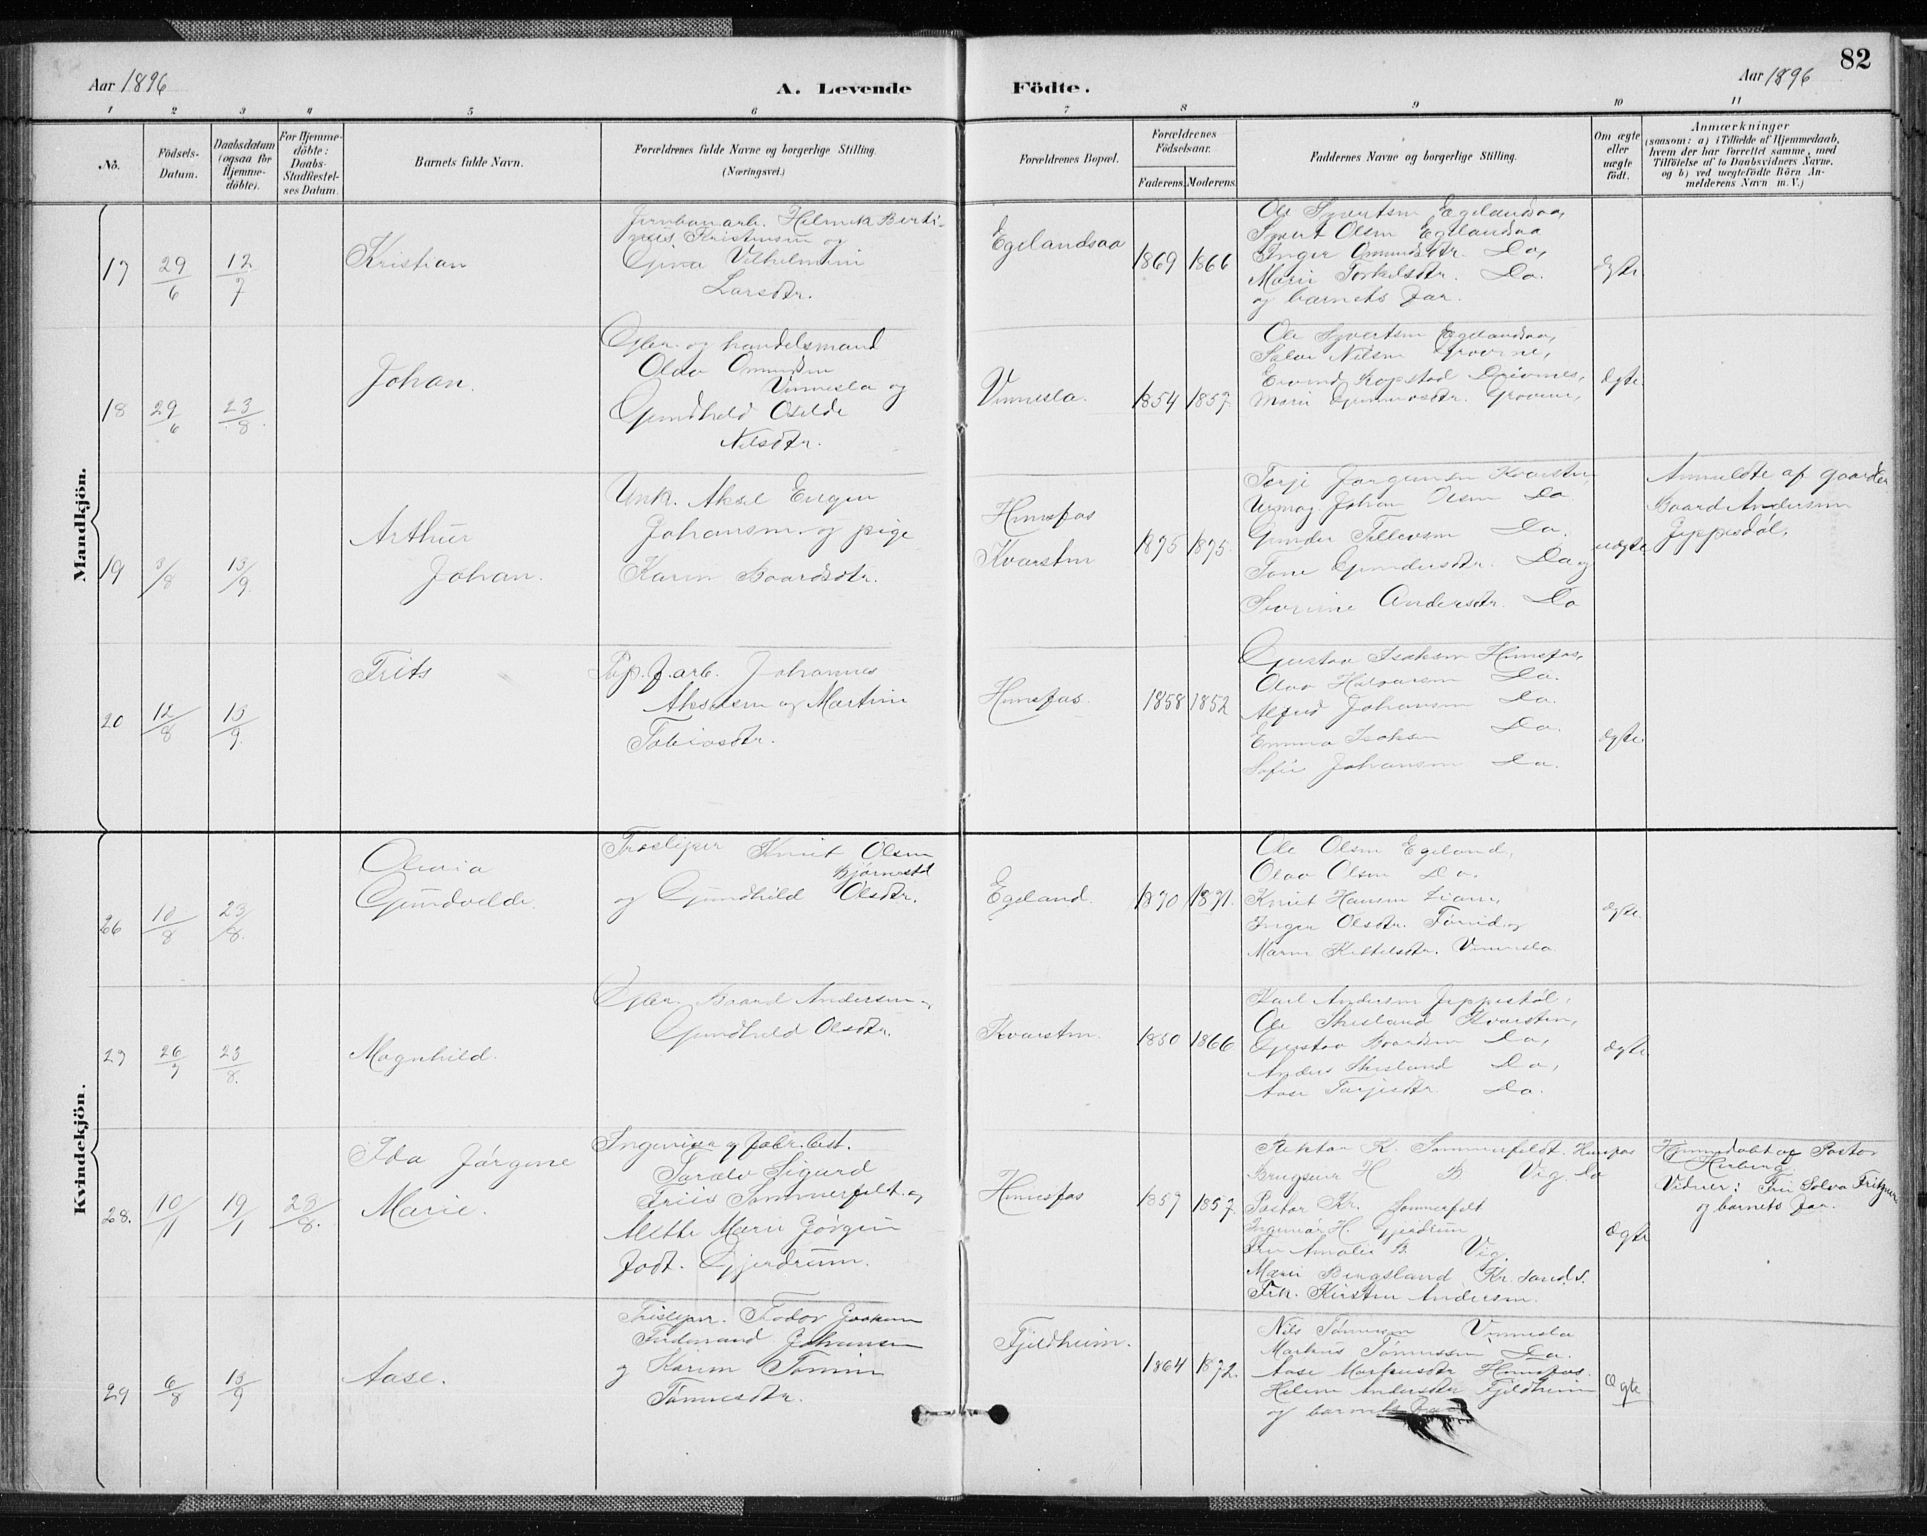 82
Aar 1896
A. Levende
Födte.
Aar 1896
1 2 3 4 5 6 7 8 9 10 11
No.
Födsels-
Datum.
Daabsdatum
(ogsaa for
Hjemme-
döbte).
For Hjemme-
döbte:
Daabs-
Stadfæstel-
ses Datum.
Barnets fulde Navn.
Forældrenes fulde Navne og borgerlige Stilling.
(Næringsvei.)
Forældrenes Bopæl.
Forældrenes
Födselsaar.
Faderens. Moderens.
Faddernes Navne og borgerlige Stilling.
Om ægte
eller
uægte
födt.
Anmærkninger
(saasom: a) i Tilfælde af Hjemmedaab,
hvem der har forrettet samme, med
Tilföielse af to Daabsvidners Navne,
og b) ved uægtefödte Börn An-
melderens Navn m. V.)
Mandkjön.
17
29/6
12/7
Kristian
Jernbanarb. Helmik Berti-
nus Kristensen og
Vilhelmine
Larsdtr.
Egelandsaa
1869 1866
Ole Syvertsen Egelandsaa,
Syvert Olsen Egelandsaa
Inger Omundsdtr. Do,
Marie Torkelsdtr. Do.
og barnets Far.
Ægte
18
29/6
23/8
Johan.
Gbr. og handelsmand
Olav Omundsen
Vennesla og
Gundhild Oselde
Nilsdtr.
Vennesla.
1854 1857
Ole Syvertsen Egelandsaa,
Salve Nilsen GroVene,
Eivind Ropstad Drivnes,
Marie Gunnvosdtr. Grovene,
Ægte
19
3/8
13/9
Arthur
Johan.
Unk. Aksel Eugen
Johansen og pige
Karen Baardsdtr.
Hunsfos
Kvarsten
1875 1875.
Terje Jørgensen Kvarsten,
Urmag. Johan Olsen Do
Gunder Tellevsen Do.
Tone Gundersdtr. Do og
Severine Andersdtr. Do
uægte
Anmeldte af gaardbr
Baard Andersen
Jeppestøl,
20
12/8
13/9
Frits
Pap. f. arb. Johannes
Akselsen og Martine
Tobiasdtr.
Hunsfos.
1858 1852
Gustav Isaksen Hunsfos,
Olav Halvorsen Do.
Alfred Johansen Do.
Emma Isaksen Do.
Sofie Johansen Do.
Ægte.
Kvindekjön.
26
10/8
23/8.
Olevia
Gundvelde.
Træsliper Knut Olsen
Bjørnestøl
og Gundhild Olsdtr.
Egeland.
1870 1871.
Ole Olsen Egeland,
Olav Olsen Do.
Knut Hansen Lian,
Inger Olsdtr.
Maren Kittelsdtr. Vennesla
Ægte.
27
26/7
23/8.
Magnhild.
Gbr. Baard Andersen og
Gundhild Olsdtr.
Kvarsten.
1850 1866
Karl Andersen Jeppestøl,
Ole Skisland Kvarsten,
Gustav Baardsen Do,
Anders Skisland Do,
Aase Tarjesdtr. Do.
Ægte
28.
10/1
19/1
23/8.
Ida Jørgine
Marie.
Ingeniør og fabr. best.
Taralv Sigurd
Friis Sommerfelt og
Mette Marie Jørgine
født. Gjerdrum.
Hunsfos
1857 1857.
K. Sommerfeldt. Hunsfos
Brugseier H B. Vig Do
Pastor Kr. Sommerfelt
Ingeniør H. Gjerdrum
Fru Amalie B. Vig,
Marie Bingsland Kr. sands.
Frk. Kirsten Andersen.
Ægte
Hjemmedøbt af Pastor
Vidner: Fru Solva Fritzner
og barnets Far.
29
6/8
13/9
Aase.
Træsliper. Teodor
Ferdinand Johansen
og Karen Tomine
Tønnesdtr.
Fjeldheim.
1864 1872.
Nils Tønnesen Vennesla
Markus Tønnessen Do.
Aase Markusdtr Hunsfos.
Helene Andersdtr Fjeldheim
og barnets Far
Ægte